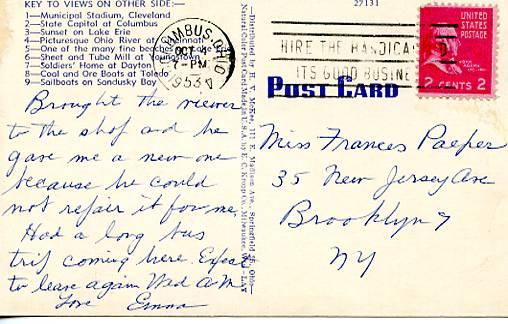 KEY TO VIEWS ON OTHER SIDE:
1—Municipal Stadium, Cleveland
2—State Capitol at Columbus
3—Sunset on Lake Erie
4—Picturesque Ohio River at Cincinnati
5—One of the many fine beaches
6—Sheet and Tube Mill at Youngstown
7—Soldiers' Home at Dayton
8—Coal and Ore Boats at Toledo
9—Sailboats on Sandusky Bay
27131
COLUMBUS, OHIO
OCT 4
7-PM
1953
HIRE THE HANDICAPPED
ITS GOOD BUSINESS
UNITED
STATES
POSTAGE
JOHN ADAMS
2 CENTS 2
POST CARD
—Distributed by H. V. McKee, 117 E. Madison Ave., Springfield 28, Ohio—
Natural Color Post Card Made in U.S.A. by E. C. Kropp Co., Milwaukee, Wis.
Brought the viewer
to the shop and he
gave me a new one
because he could
not repair it for me.
Had a long bus
trip coming here. Expect
to leave again Wed A-M.
Love Emma
Miss Frances Paeper
35 New Jersey Ave
Brooklyn 7
NY